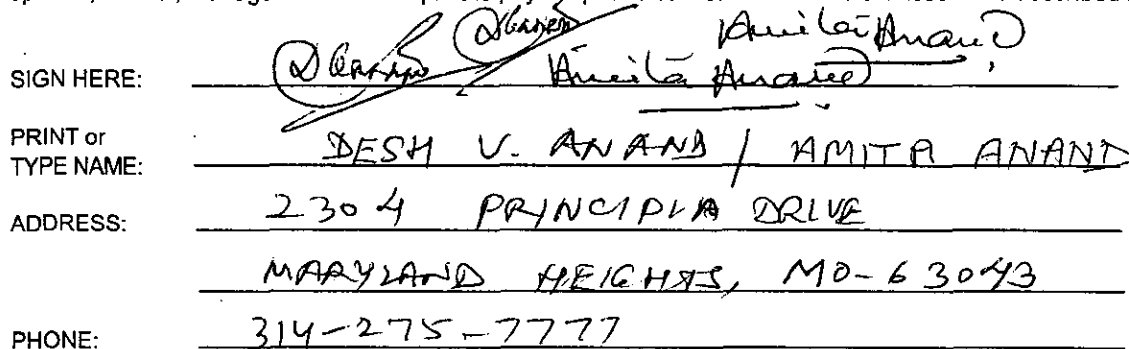 Amita Anand
SIGN HERE: DAnand Amita Anand
PRINT or
TYPE NAME: DESH V. ANAND / AMITA ANAND
ADDRESS: 2304 PRINCIPIA DRIVE
MARYLAND HEIGHTS, MO-63043
PHONE: 314-275-7777